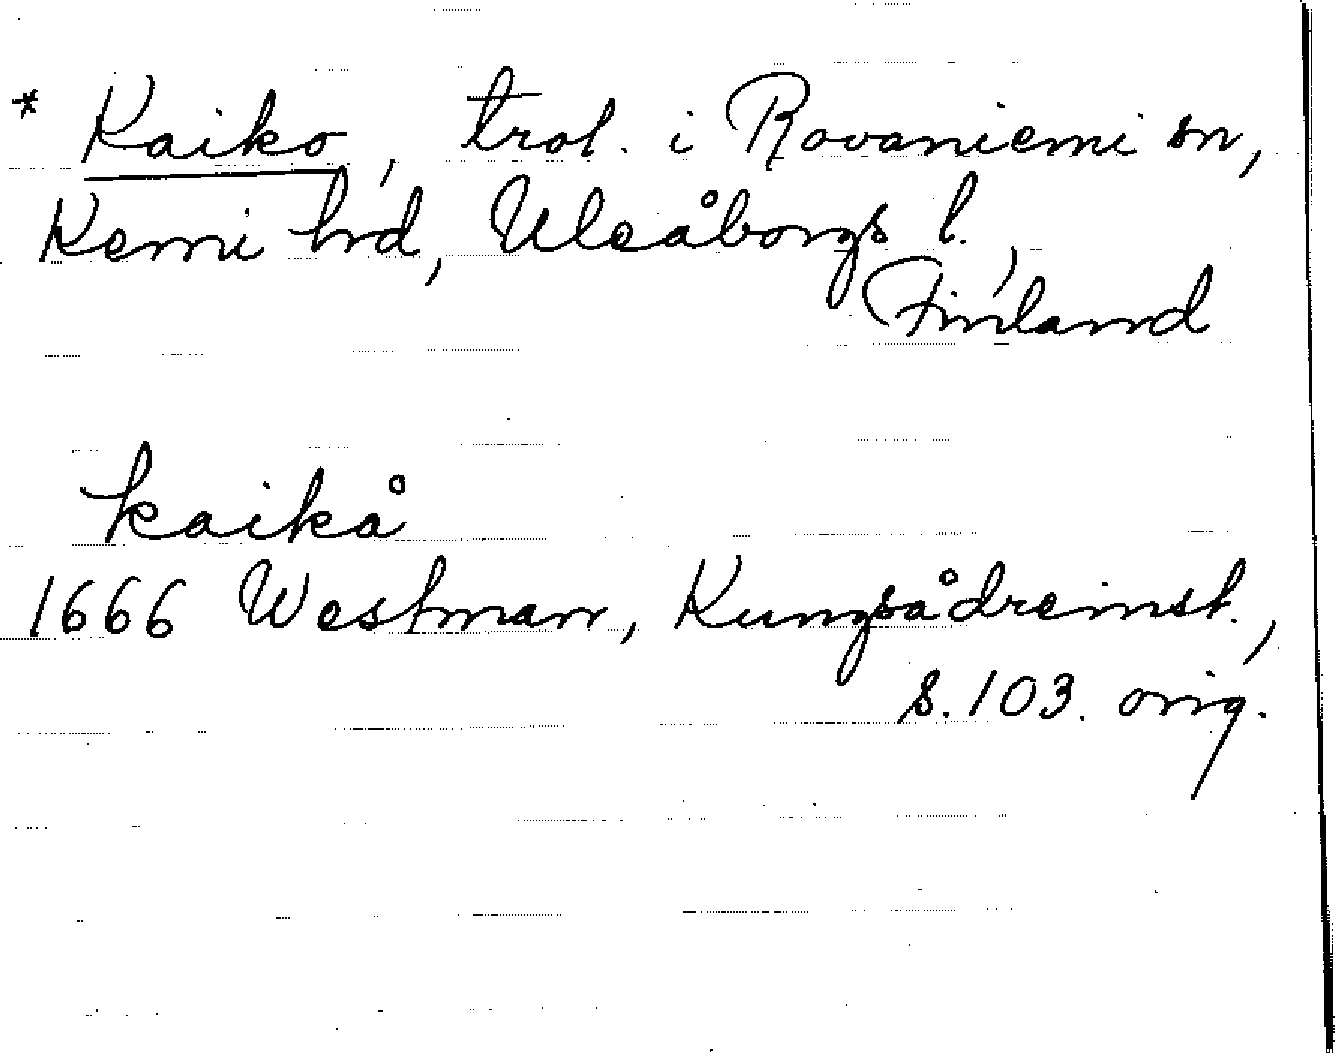 * Kaiko, trol. i Rovaniemi sn,
Kemi hrd, Uleåborgs l.,
Finland
kaikå
1666 Westman, Kungsådreinst.,
s. 103. orig.